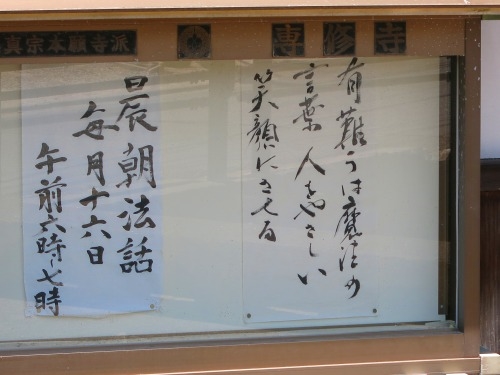 真宗本願寺派
専修寺
有難うは魔法の
言葉 人をやさしい
笑顔にさせる
晨朝法話
毎月十六日
午前六時~七時